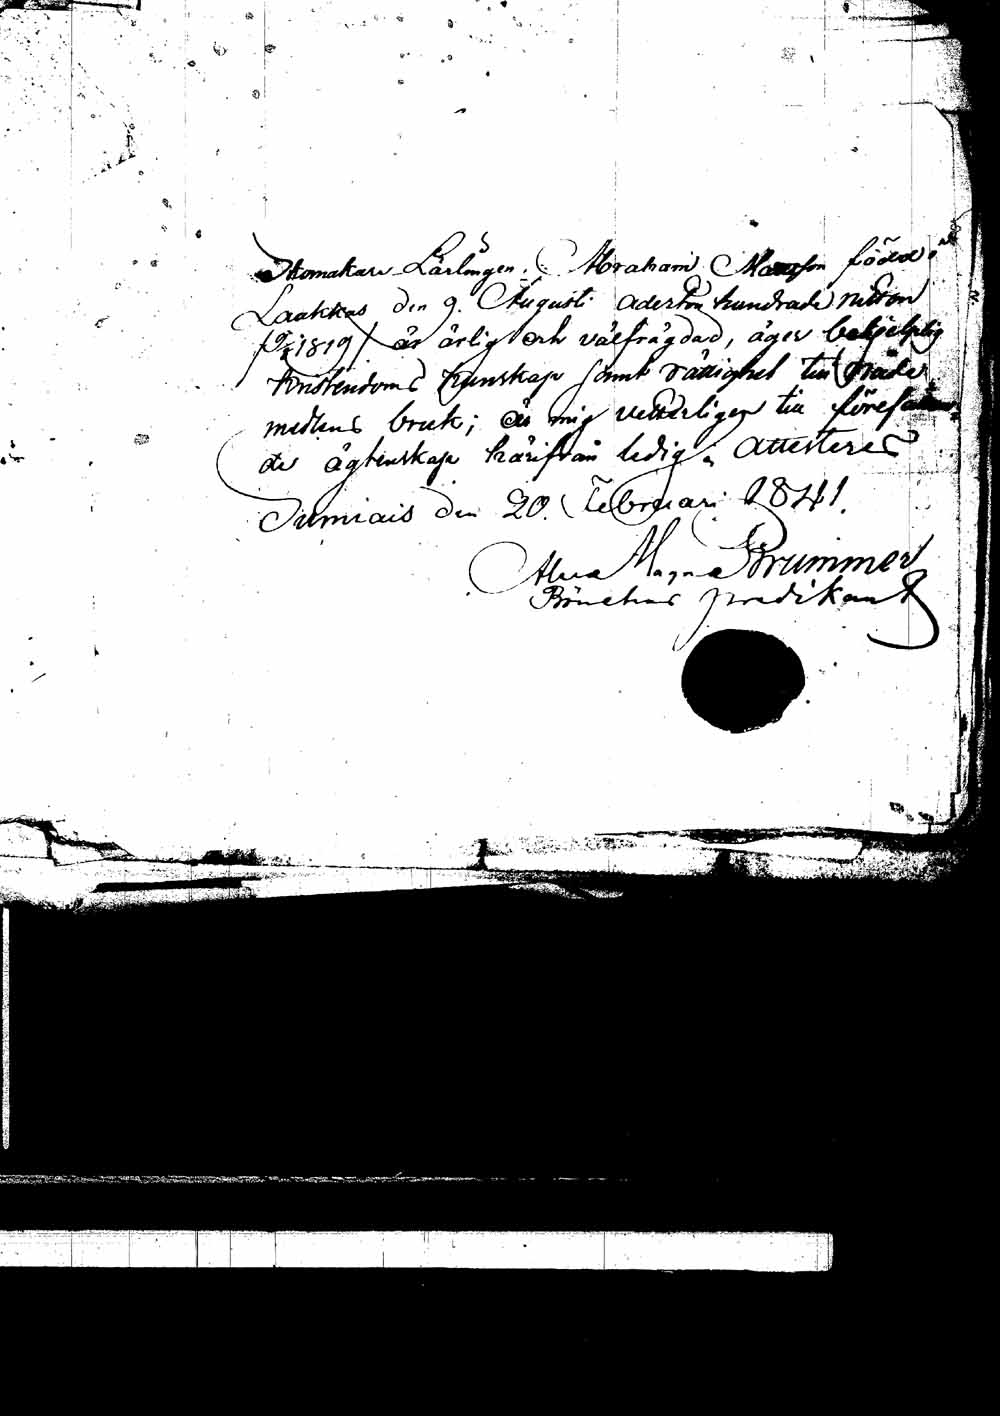 Skomakare Lärlingen Abraham Mattsson född i
Laakkas den 9. Augusti adertonhundrade nitton
(9/8 1819) är ärlig och välfrägdad, äger behjelplig
kristendoms kunskap samt rättighet till Nåde
medlens bruk; är mig veterligen till
de ägtenskap härifrån ledig, attesteres
Jumiais den 20. Februari 1841.
Magnus Brummer
predikant